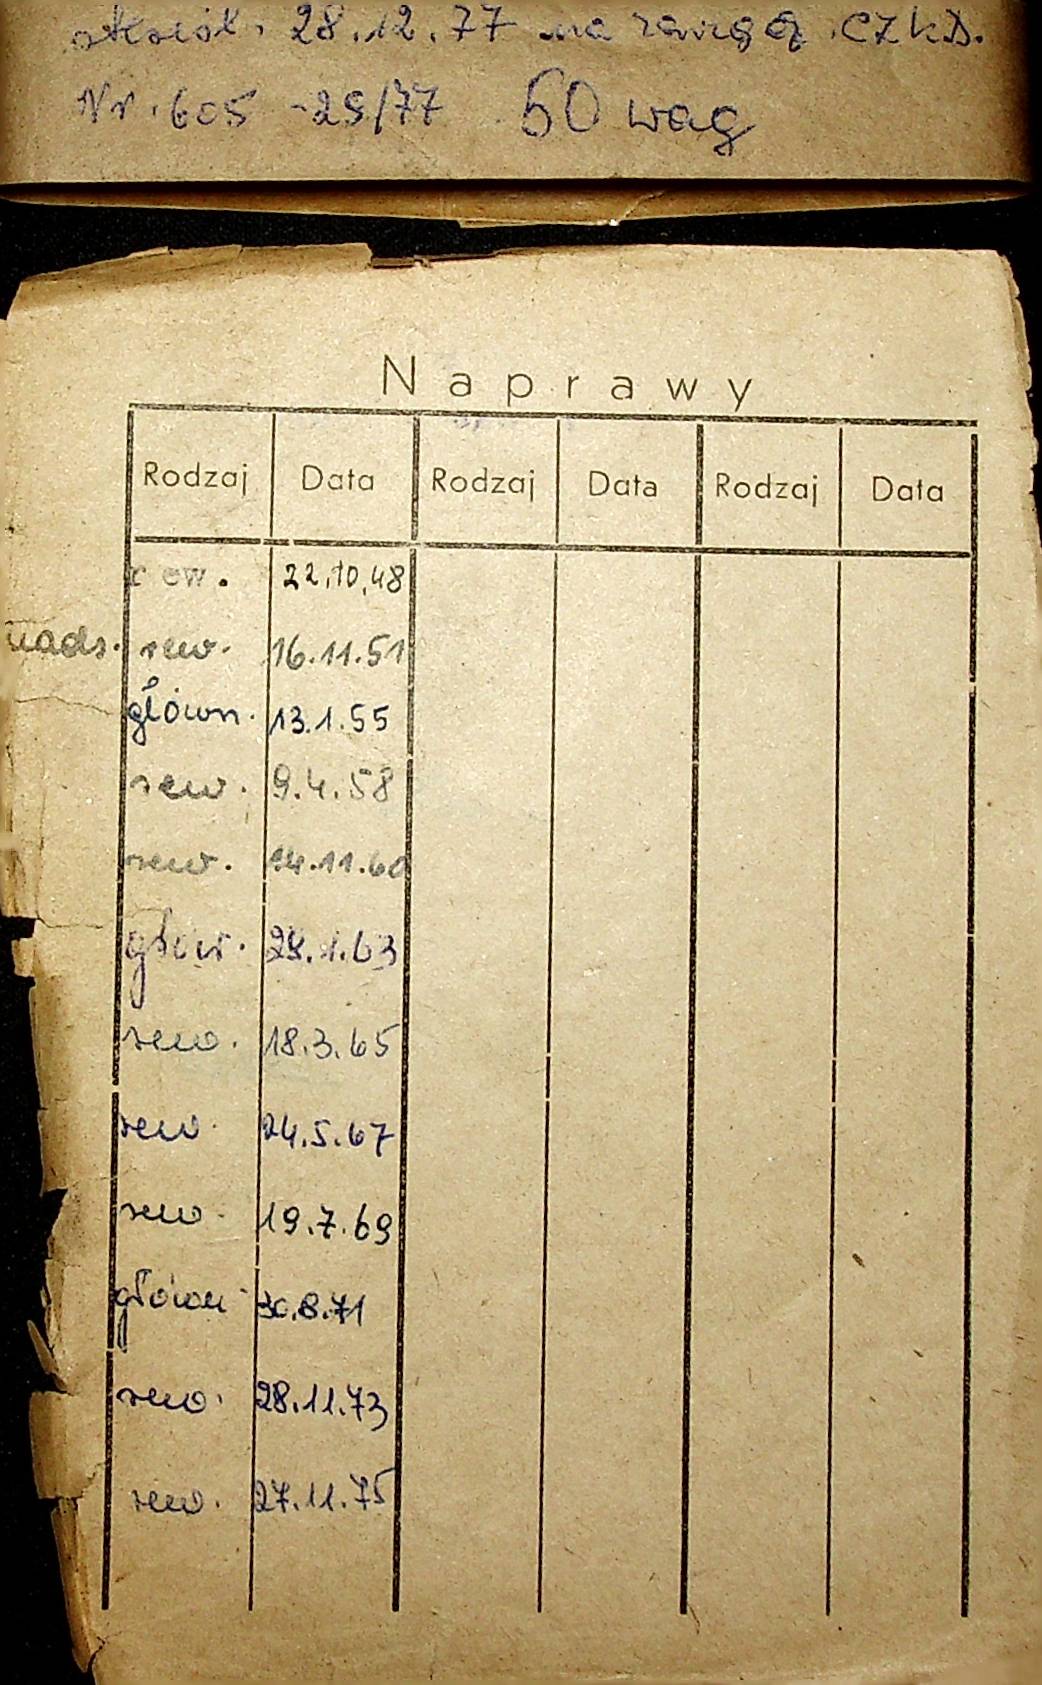 28.12.77 na CZKD.
Nr. 605 -29/77 50 wag
Naprawy
Rodzaj Data Rodzaj Data Rodzaj Data
rew. 22.10.48
nads. rew. 16.11.51
główn. 13.1.55
rew. 9.4.58
rew. 14.11.60
głów. .1.63
rew. 18.3.65
rew. 24.5.67
rew. 19.7.69
główn 30.8.71
rew. 28.11.73
rew. 27.11.75